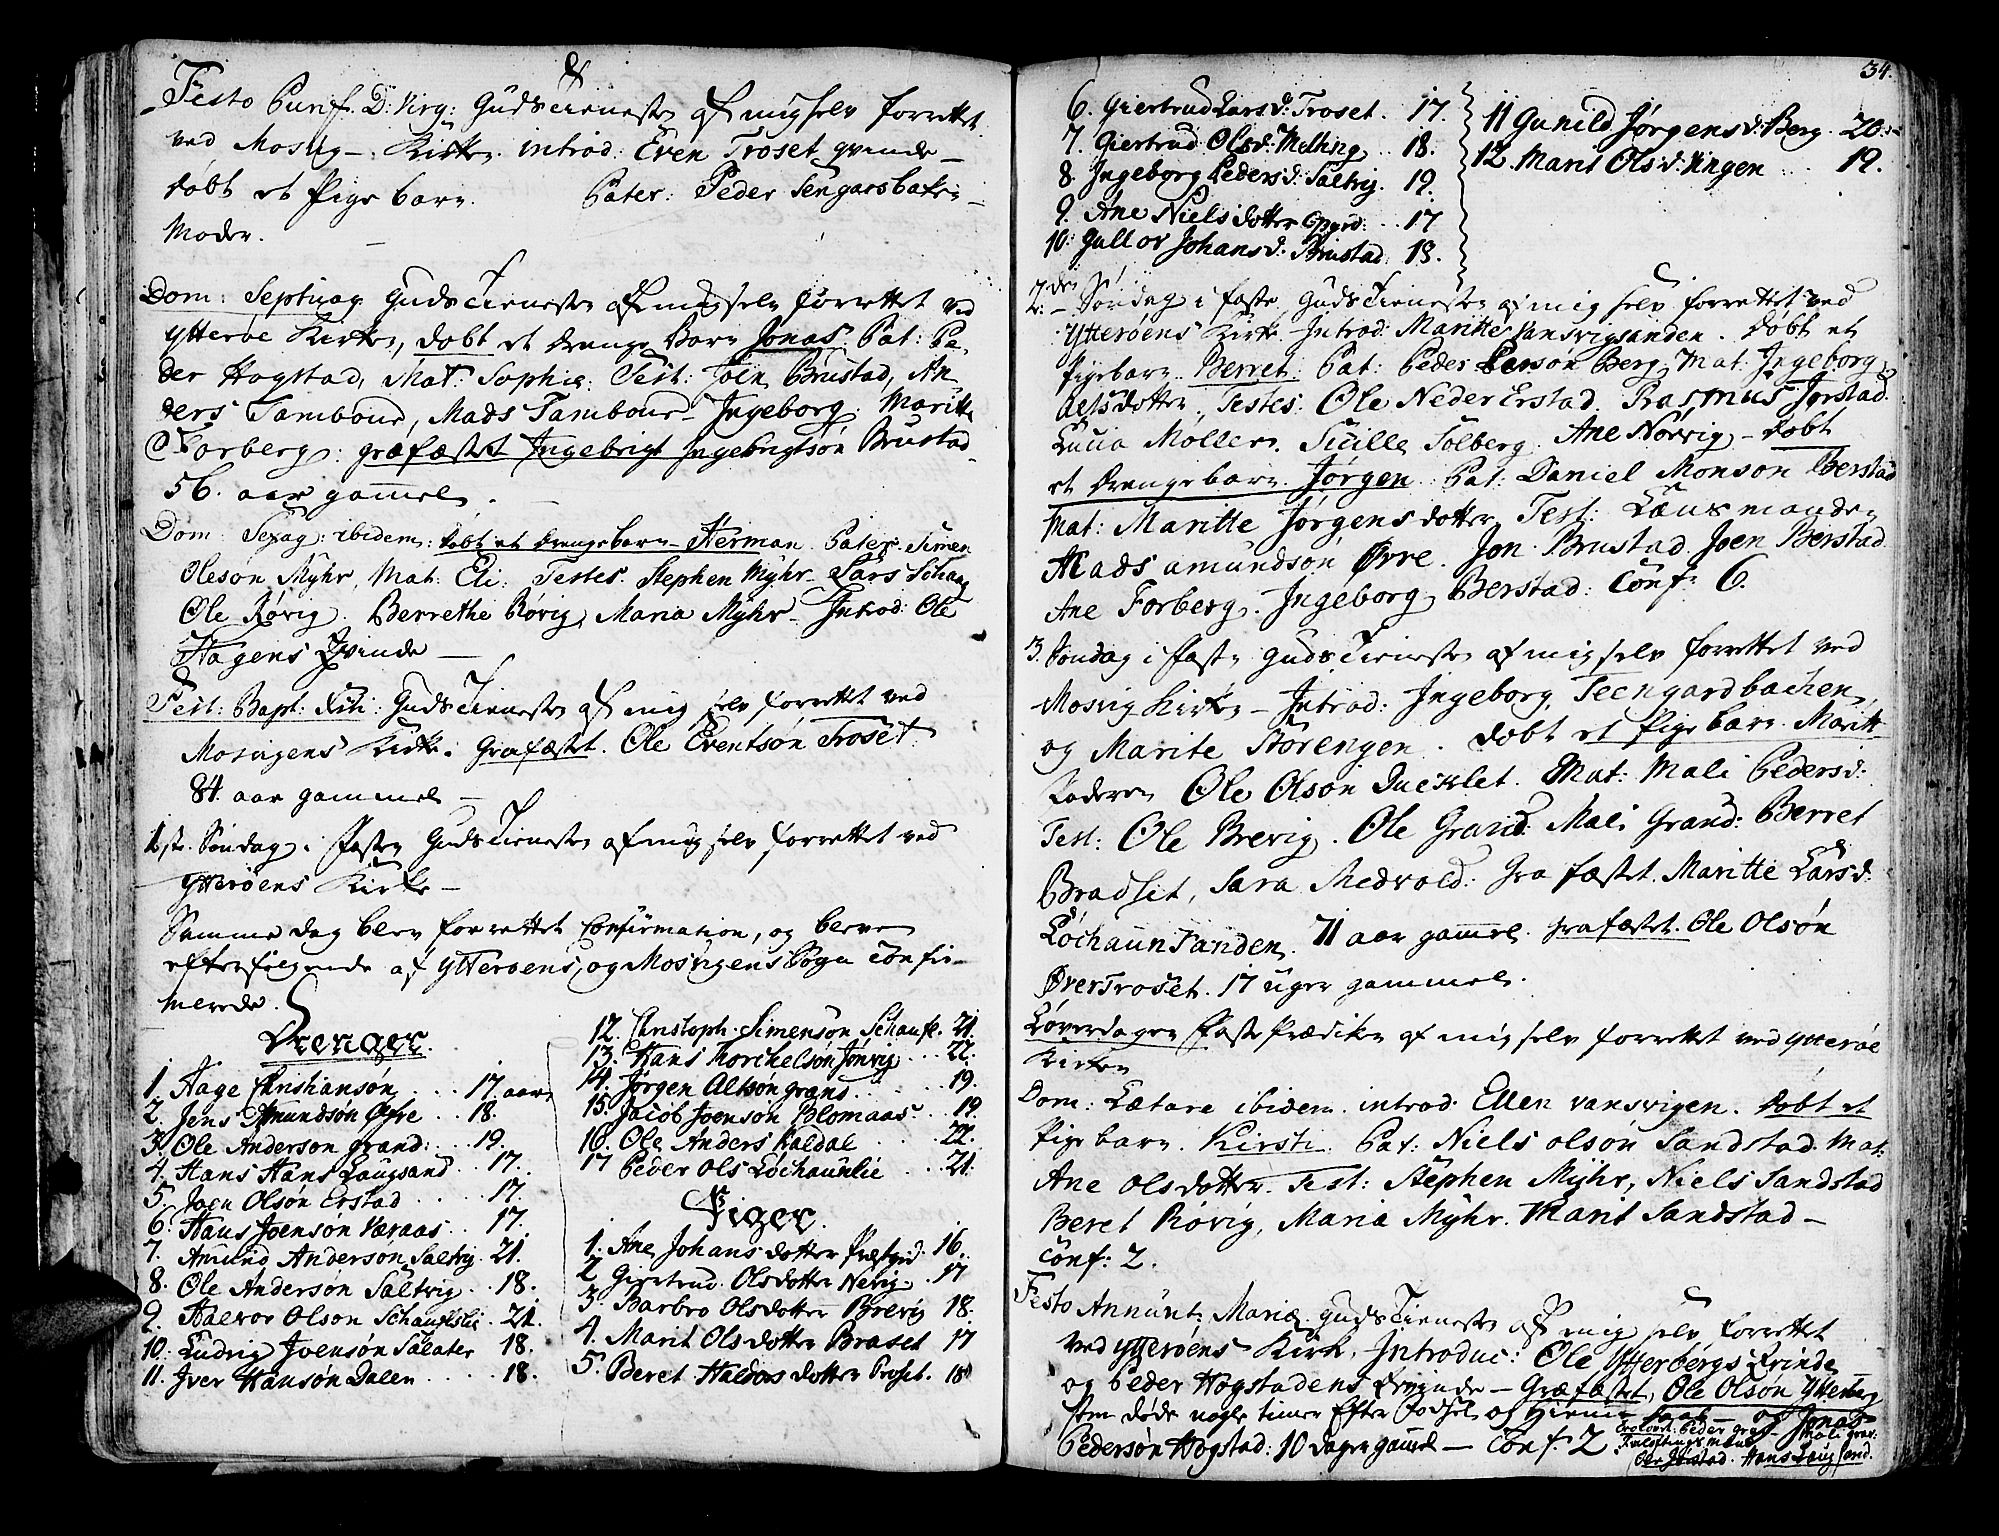 Festo Purif. D: Virg: Guds Tienesten af mig selv forrettet
ved Mosvig Kirke. introd: Even Troset qvinde
døbt et Pige barn. Pater: Peder
Moder.
Dom: Septuag Guds Tienesten af mig selv forrettet ved
Ytterøe Kirke, døbt et drenge Barn Jonas. Pat: Pe-
der Hogstad, Mat: Sophie: Test: Joen Brustad, An-
ders Tambour, Mads Tambour Ingeborg: Maritte
Forberg: græfæstet Ingebrigt Ingebrigtsøn Brustad
56. aar gammel.
Dom Sexag: ibidem: døbt et drengebarn Herman. Pater. Simen
Olesøn Myhr, Mat: Eli: Testes. Stephen Myhr Lars
Ole Røvig. Berrethe Røvig, Maria Myhr. Introd: Ole
Hagens Qvinde
Fest: Guds Tienesten af mig selv forrettet ved
Mosvigens Kirke. Græfæstet. Ole Eventsøn Troset
84. aar gammel
1ste. Søndag i Fasten Guds Tienesten af mig selv forrettet ved
Ytterøens Kirke
Samme dag blev forrettet Confirmation, og bleve
efterfølgende af Ytterøens og Mosvigens Sogn Confir-
merede.
Drenger
1. Aage Christiansøn 17 aar
2. Jens Amundsøn Øvre 18.
3. Ole Anderson grand: 19.
4. Hans Hans Laugsand 17.
5. Joen Olsøn Erstad 17.
6. Hans Joenson Væraas 17.
7. Amund Andersøn Saltvig 21.
8. Ole Andersøn Saltvig 18.
9. Halvor Olson 21.
10. Ludvig Joensøn Saltater 18.
11. Iver Hansøn Dalen 18.
12. Christoph. Simensøn 21.
13. Hans Torchelsøn Jønvig 22.
14. Jørgen grand 19.
15. Jacob Joensøn Blomaas 19.
16. Ole Anders Kaldal 22.
17 Peder Ols Løchaunlie 21.
Piger
1. Ane Johans dotter Præstgrd. 16.
2. Giertrud Olsdotter Nevig 17
3. Barbro Olsdotter Brevig 18.
4. Marit Ols dotter Braset 17
5. Beret dotter Troset. 18
34.
6. Giertrud Lars d: Troset. 17.
7. Giertrud Ols d: Melhing 18.
8. Ingeborg Peders d: Saltvig. 19.
9. Ane Niels dotter 17
10: Gullov Johans d: Brustad: 18.
11 Gunild Jørgens d: Berg. 20.
12. Marit Ols d: Vingen 19.
2. den Søndag i faste Guds Tienesten af mig selv forrettet ved
Ytterøens Kirke Introd: Maritte Vansvigsanden. Døbt et
Pigebarn. Berret: Pat: Peder Larsøn Berg, Mat: Ingeborg
dotter, Testes: Ole Neder Erstad. Rasmus Jørstad.
Lucia Møller. Sicille Solberg. Ane Norvig døbt
et drengebarn. Jørgen. Pat: Daniel Monson Berstad
Mat: Maritte Jørgens dotter, Test: Lænsmanden
Mads Amundsøn Øvre. Jon Brustad. Joen Berstad
Ane Forberg. Ingeborg Berstad: Conf: 6.
3. Søndag i faste Guds Tienesten af mig selv forrettet ved
Mosvig Kirke Introd: Ingeborg
og Marite Storengen. døbt et Pige barn. Marit
Faderen Ole Olsøn Duesklet. Mat: Mali Peders d:
Test: Ole Brevig. Ole Grand: Mali Grand: Berret
Bradset, Sara Medvold: Græfæstet. Maritte Lars d:
Løchaun Sanden. 71 aar gammel. græfæstet. Ole Olsøn
Øver Troset. 17 uger gammel.
Løverdagen Faste Prædiken af mig selv forrettet ved Ytterøe
Kirke
Dom: Lætare ibidem. introd Ellen Vansvigen. døbt et
Pige barn. Kirsti. Pat: Niels olsøn Sandstad. Mat:
Ane olsdotter. Test: Stephen Myhr, Niels Sandstad
Beret Røvig, Maria Myhr. Marit Sandstad
Conf: 2.
Festo Annunt: Mariæ. Guds Tienesten af mig selv forrettet
ved Ytterøens Kirke, Introduc: Ole Ytterbergs Qvinde
og Peder Hogstadens Qvinde Græfæstet, Ole Olsøn Ytterberg
som døde nogle timer efter Fødsel og Hiemme og Jonas
Pedersøn Hogstad: 10 dage gammel Conf: 2
Trolovet: Peder Mali grand:
Ole Jørstad. Hans Laugsand.